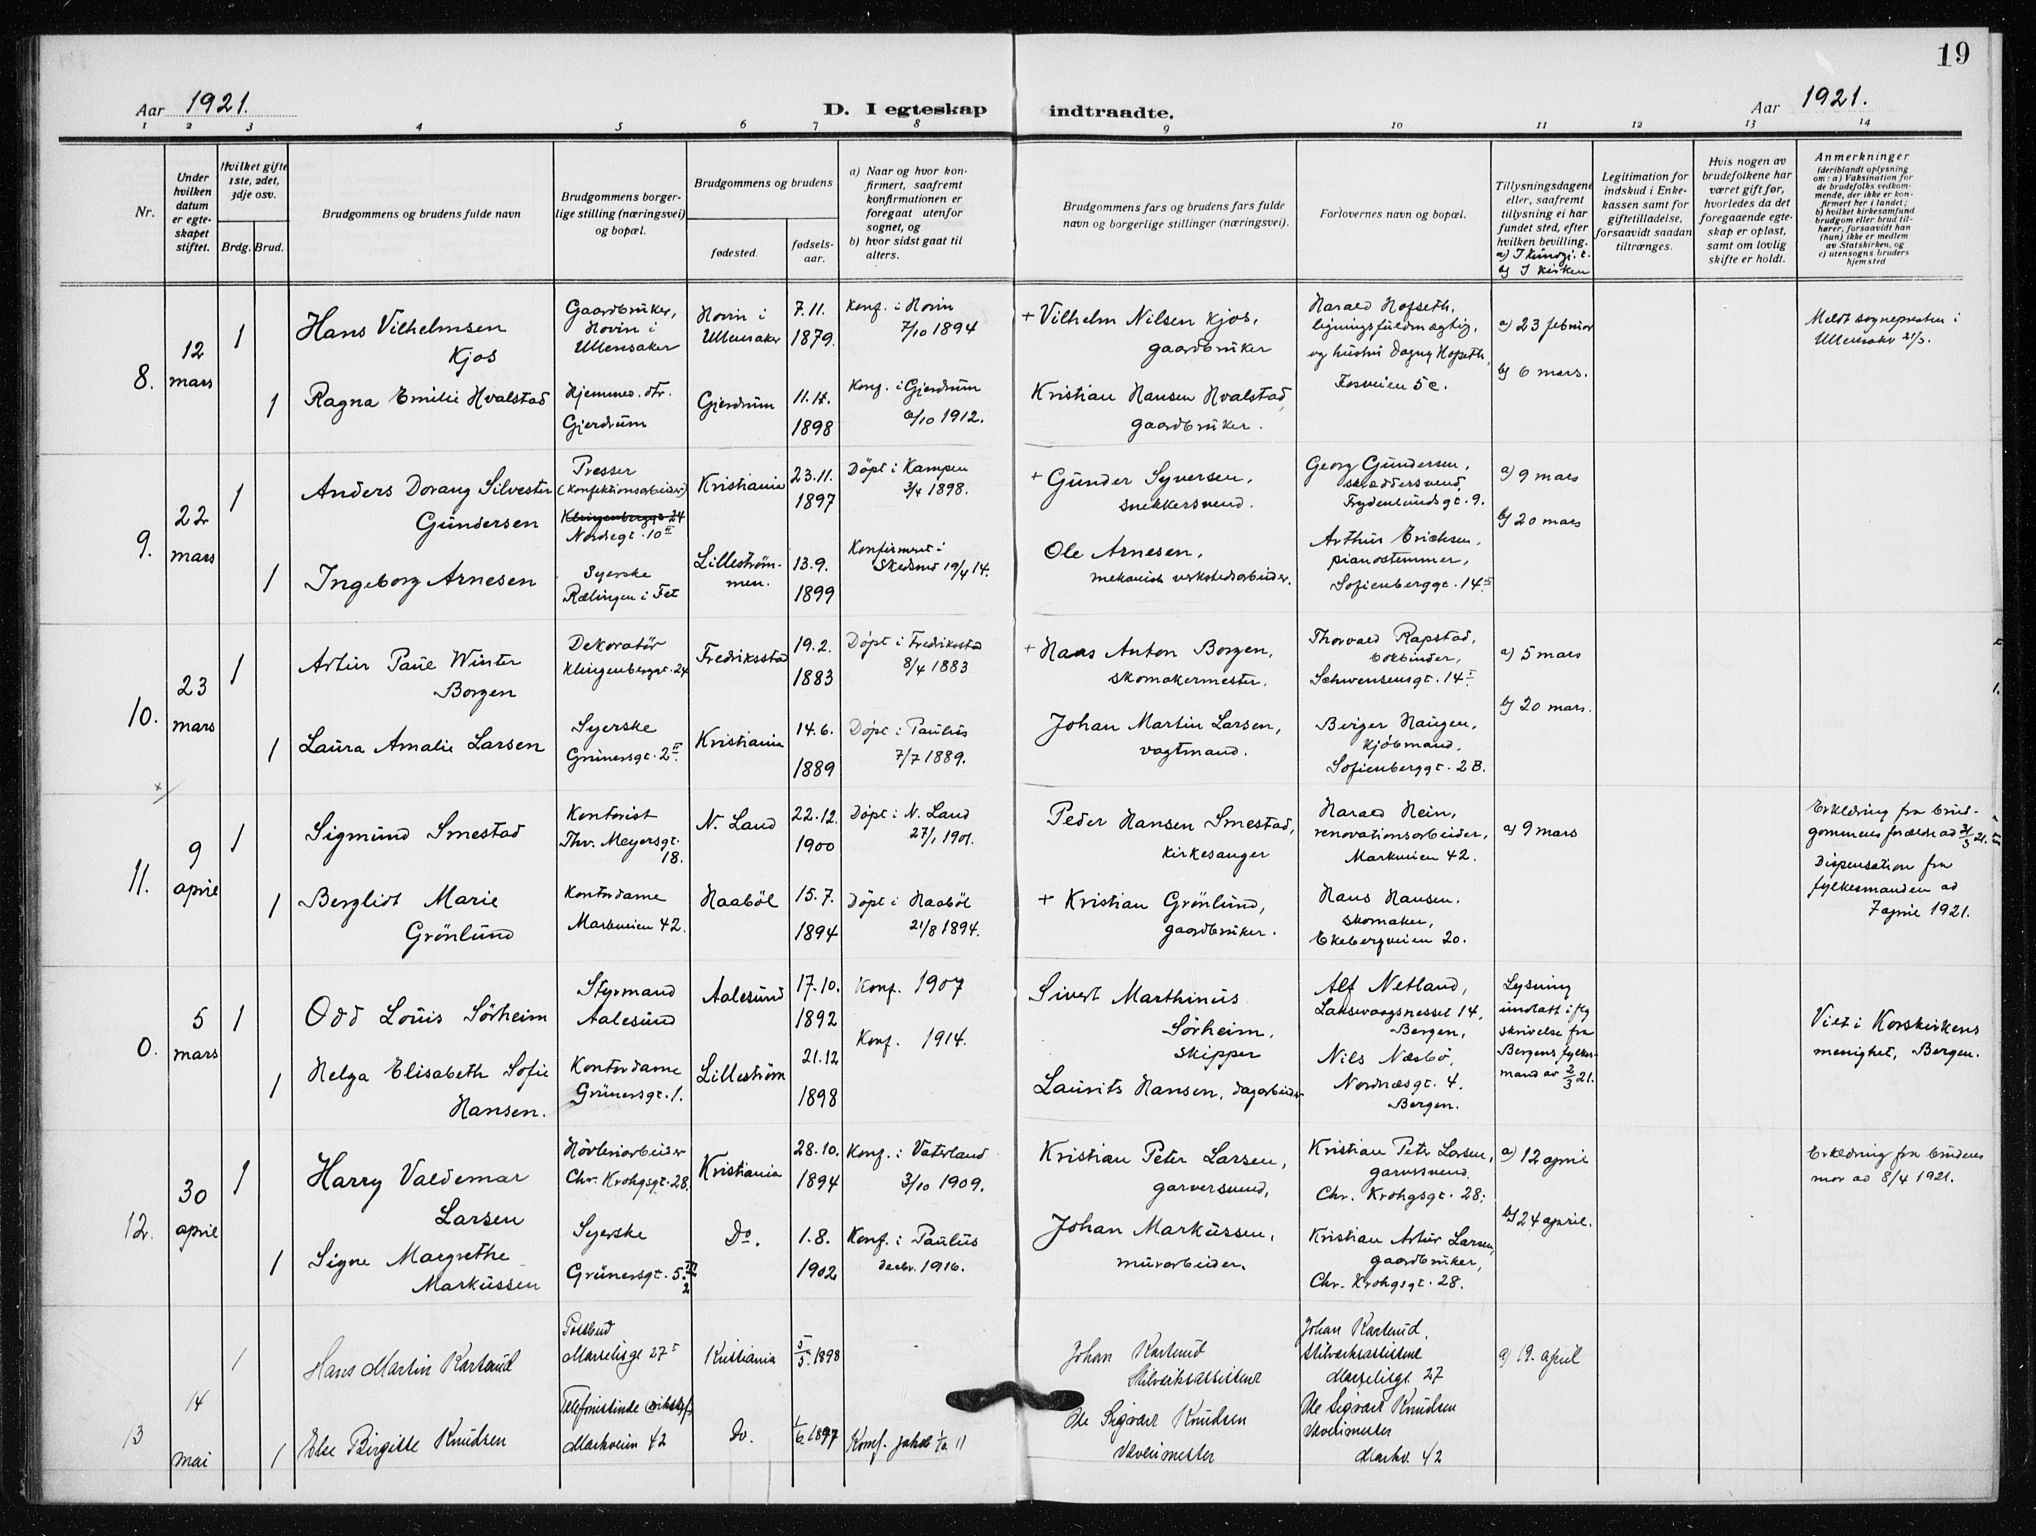 19
Aar 1921.
D. I egteskap
indtraadte.
Aar 1921.
1 2 3 4 5 6 7 8 9 10 11 12 13 14
Nr.
Under
hvilken
datum
er egte-
skapet
stiftet.
Hvilket gifte
1ste, 2det,
3dje osv.
Brdg. Brud.
Brudgommens og brudens fulde navn
Brudgommens borger-
lige stilling (næringsvei)
og bopæl.
Brudgommens og brudens
fødested.
fødsels-
aar.
a) Naar og hvor kon-
firmert, saafremt
konfirmationen er
foregaat utenfor
sognet, og
b) hvor sidst gaat til
alters.
Brudgommens fars og brudens fars fulde
navn og borgerlige stillinger (næringsvei).
Forlovernes navn og bopæl.
Tillysningsdagene
eller, saafremt
tillysning ei har
fundet sted, efter
hvilken bevilling.
b) I kirken
Legitimation for
indskud i Enke-
kassen samt for
giftetilladelse,
forsaavidt saadan
tiltrænges.
Hvis nogen av
brudefolkene har
været gift før,
hvorledes da det
foregaaende egte-
skap er opløst,
samt om lovlig
skifte er holdt.
Anmerkninger
(deriblandt oplysning
om: a) Vaksination for
de brudefolks vedkom-
mende, der ikke er kon-
firmert her i landet;
b) hvilket kirkesamfund
brudgom eller brud til-
hører, forsaavidt han
(hun) ikke er medlem
av Statskirken, og
c) utensogns bruders
hjemsted
8.
12
mars
1
Hans Vilhelmsen
Kjos
Gaardbruker,
Hovin i
Ullensaker
Hovin i
Ullensaker
7.11.
1879.
Konf. i Hovin
7/10 1894
+ Vilhelm Nilsen Kjos,
gaardbruker
Harald Hofseth,
ligningsfuldmægtig,
og hustru Dagny Hofseth,
Fosveien 5c.
a) 23 februar
b) 6 mars.
Meldt sognepresten i
Ullensaker 21/3.
1
Ragna Emilie Hvalstad
Hjemmev. dtr.
Gjerdrum
Gjerdrum
11.11.
1898
Konf. i Gjerdrum
6/10 1912.
Kristian Hansen Hvalstad
gaardbruker.
9.
22
mars
1
Anders Dovang Silvester
Gundersen
Presser
(Konfektionsarbeider)
Klingenberggt 24
Nordregt. 10 II
Kristiania
23.11.
1897
Døpt i Kampen
3/4 1898.
+ Gunder Syversen,
snekkersvend.
Georg Gundersen,
skræddersvend,
Frydenlundsgt. 9.
a) 9 mars
b) 20 mars
1
Ingeborg Arnesen
Syerske
Rælingen i Fet
Lillestrøm-
men.
13.9.
1899
Konfirmert i
Skedsmo 19/4 14.
Ole Arnesen,
mekanisk verkstedsarbeider.
Arthur Ericksen,
pianostemmer,
Sofienberggt. 14 II
10.
23
mars
1
Artur Paul Winter
Borgen
Dekoratør
Klingenberggt. 24
Fredriksstad
19.2.
1883
Døpt i Fredriksstad
8/4 1883
+ Hans Anton Borgen,
skomakermester.
Thorvald Rapstad,
bokbinder,
Schwensensgt. 14 I
a) 5 mars
b) 20 mars.
1
Laura Amalie Larsen
Syerske
Grünersgt. 2 II
Kristiania
14.6.
1889
Døpt i Paulus
7/7 1889.
Johan Martin Larsen,
vagtmand.
Berger Haugen,
kjøbmand.
Sofienberggt. 2 B.
11.
9
april
1
Sigmund Smestad
Kontorist
Thv. Meyersgt.
18.
N. Land
22.12.
1900
Døpt i N. Land
27/1 1901.
Peder Hansen Smestad,
kirkesanger
Harald Hein,
renovationsarbeider,
Markveien 42.
a) 9 mars
Erklæring fra brud-
gommens forældre ad 31/3 21.
Dispensation fra
fylkesmanden ad
7 april 1921.
1
Bergliot Marie
Grönlund
Kontordame
Markveien 42.
Haaböl
15.7.
1894
Døpt i Haaböl
21/8 1894.
+ Kristian Grönlund,
gaardbruker.
Hans Hansen.
skomaker,
Ekebergveien 20.
0.
5
mars
1
Odd Louis Sørheim
Styrmand
Aalesund
Aalesund
17.10.
1892
Konf. 1907
Sivert Marthinus
Sørheim,
skipper
Alf Netland,
Laksevaagsnesset 14,
Bergen,
Lysning
undlatt i flg
skrivelse fra
Bergens fylkes-
mand av 2/3 21.
Viet i Korskirkens
menighet, Bergen.
1
Helga Elisabeth Sofie
Hansen.
Kontordame
Grünersgt. 1.
Lillestrøm
21.12
1898
Konf. 1914.
Laurits Hansen, dagarbeider
Nils Næsbø,
Nordnæsgt. 4.
Bergen.
12.
30
april
1
Harry Valdemar
Larsen
Høvleriarbeider
Chr. Krohgsgt. 28.
Kristiania
28.10.
1894
Konf. i Vaterland
3/10 1909.
Kristian Peter Larsen,
garversvend,
Kristian Petr Larsen,
garversvend
Chr. Krohgsgt. 28.
a) 12 april
b) 24 april.
Erklæring fra brudens
mor ad 8/4 1921.
1
Signe Margrethe
Markussen
Syerske
Grünersgt. 5.
Do.
1.8.
1902
Konf. i Paulus
decbr. 1916.
Johan Markussen,
murarbeider.
Kristian Artur Larsen,
gaardbruker,
Chr. Krohgsgt. 28.
13
14
mai
1
Hans Martin Karlsrud
Postbud
Marselisgt 27 I
Kristiania
5/5 1898
Johan Karlsrud
Johan Karlsrud,
Marselisgt 27
a) 19. april
1
Else Birgitte Knudsen
Telefonistinde
Markveien 42
Do.
1/6 1897
Konf. Jakob 1/10 11
Ole Sigvart Knudsen
Væverimester
Ole Sigvart Knudsen
Væverimester
Markv. 42